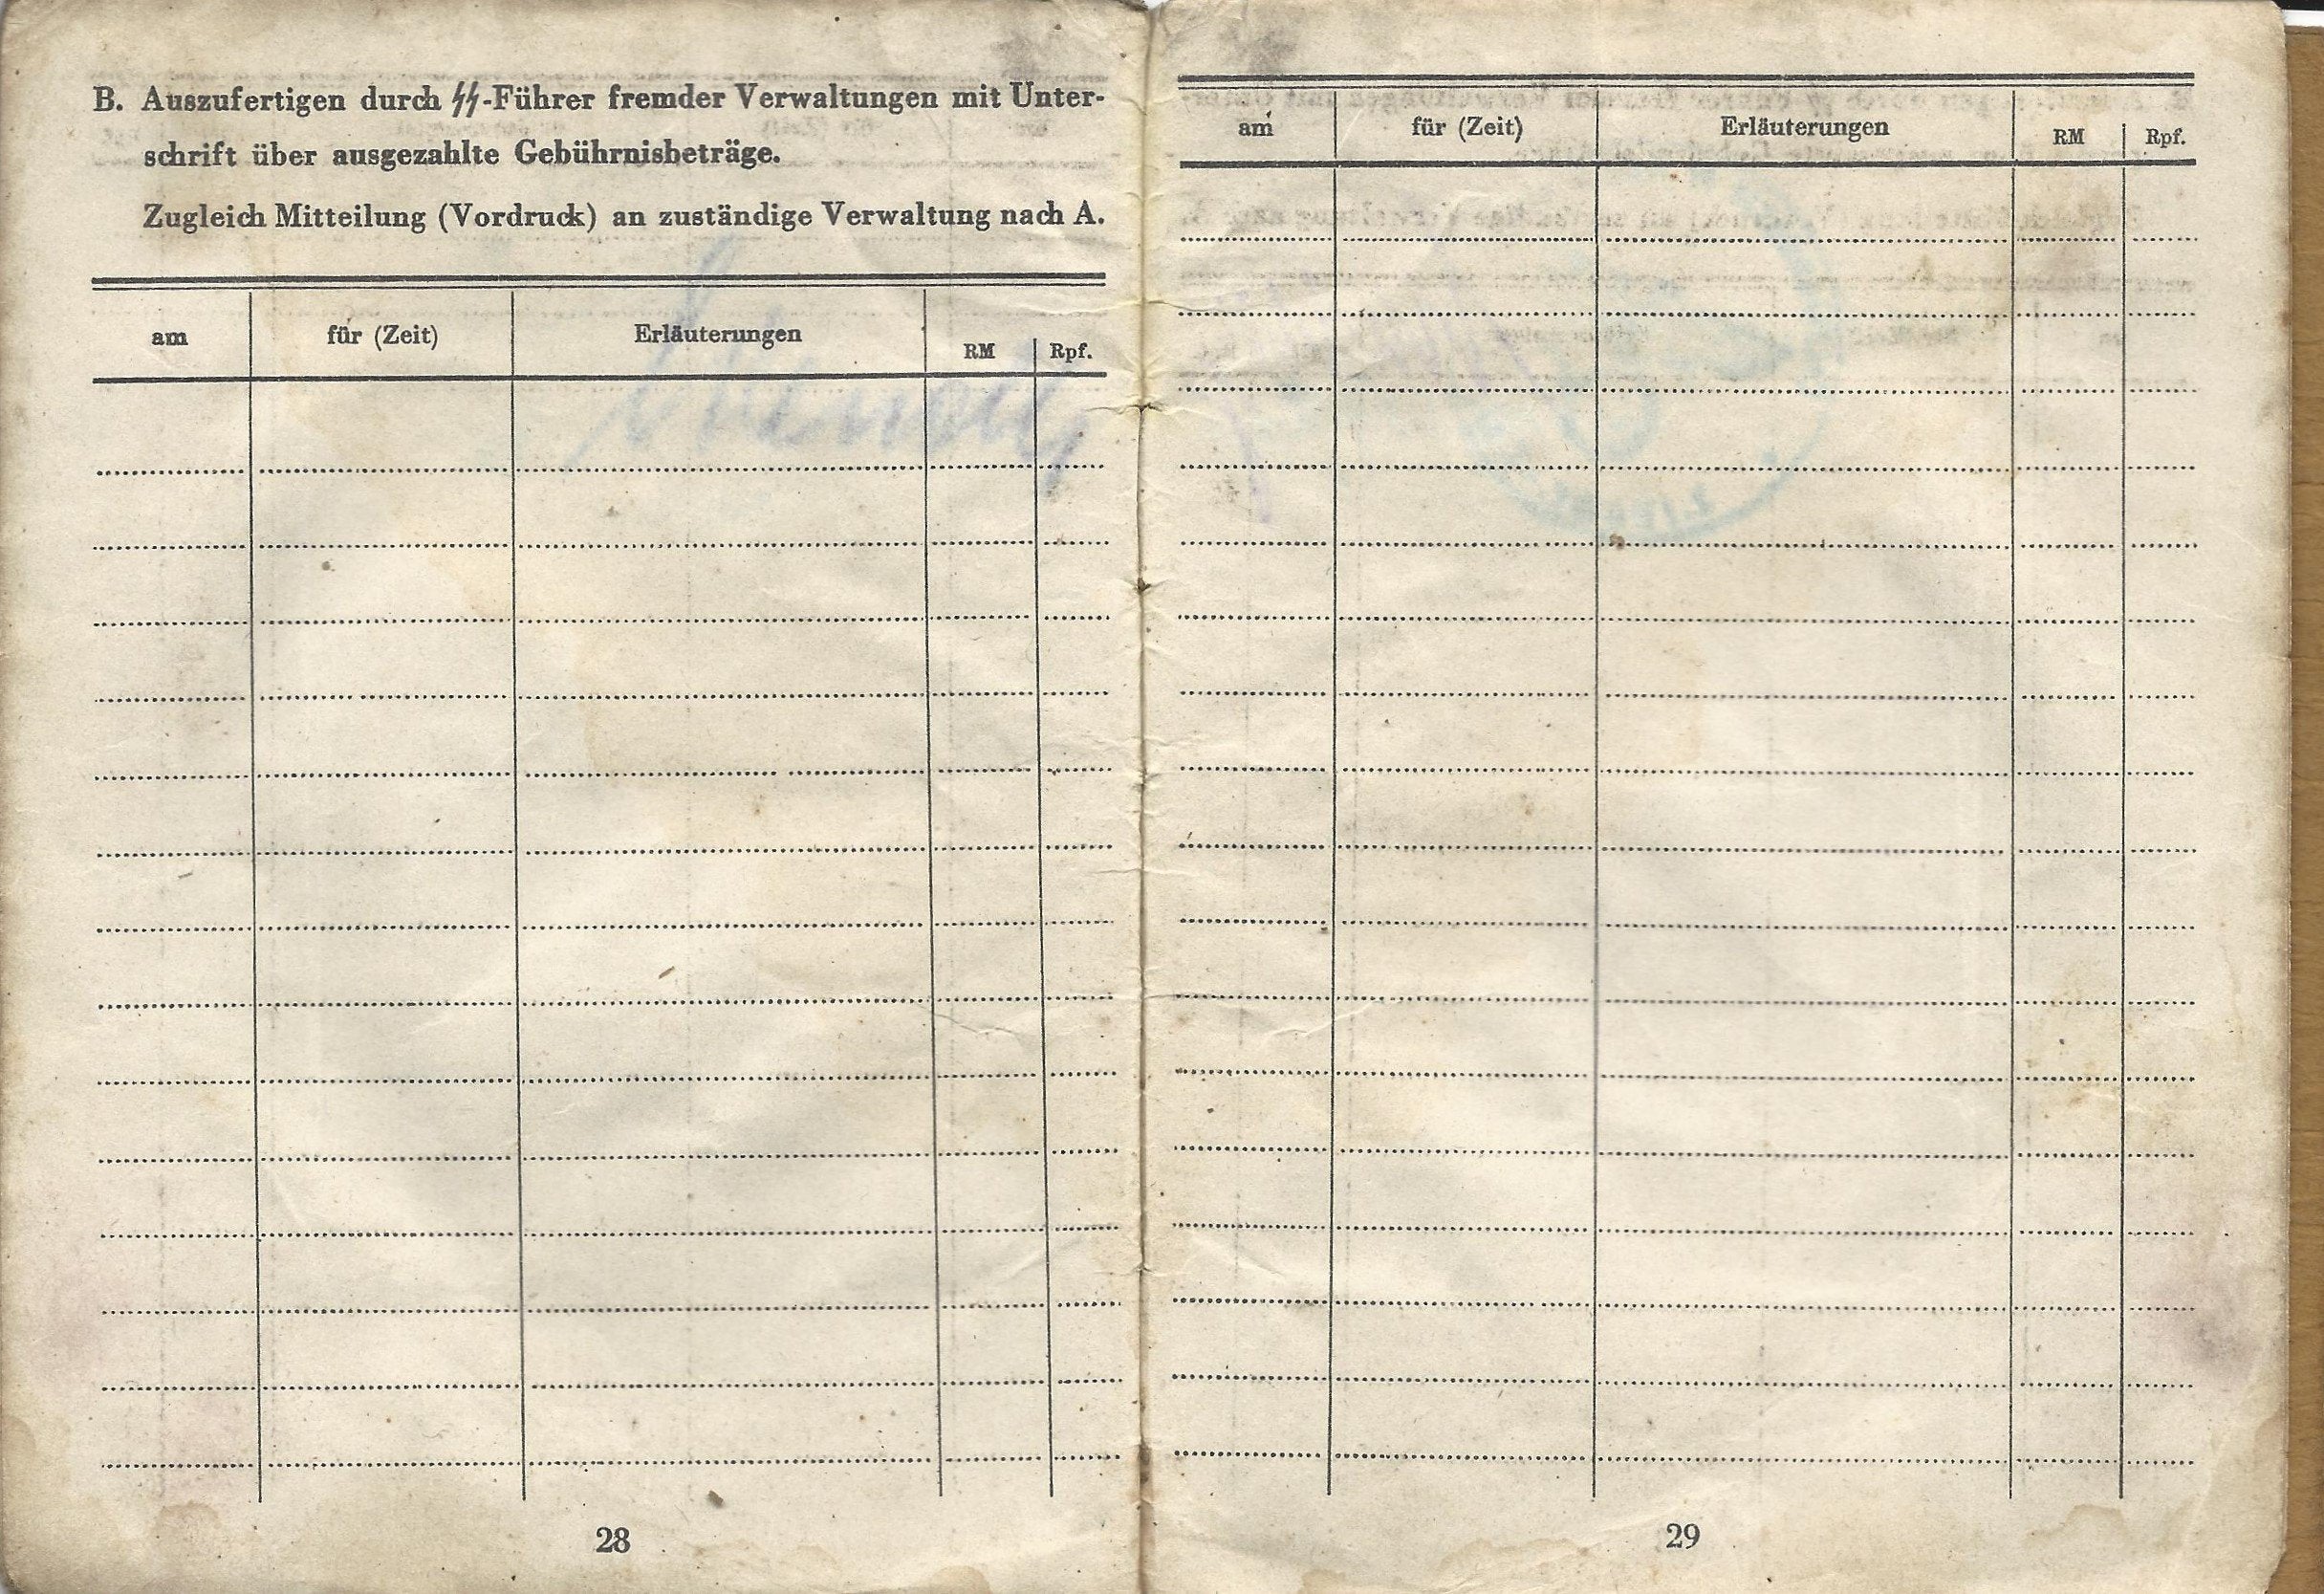 B. Auszufertigen durch ᛋᛋ-Führer fremder Verwaltungen mit Unter-
schrift über ausgezahlte Gebührnisbeträge.
Zugleich Mitteilung (Vordruck) an zuständige Verwaltung nach A.
am für (Zeit) Erläuterungen RM Rpf.
28
am für (Zeit) Erläuterungen RM Rpf.
29